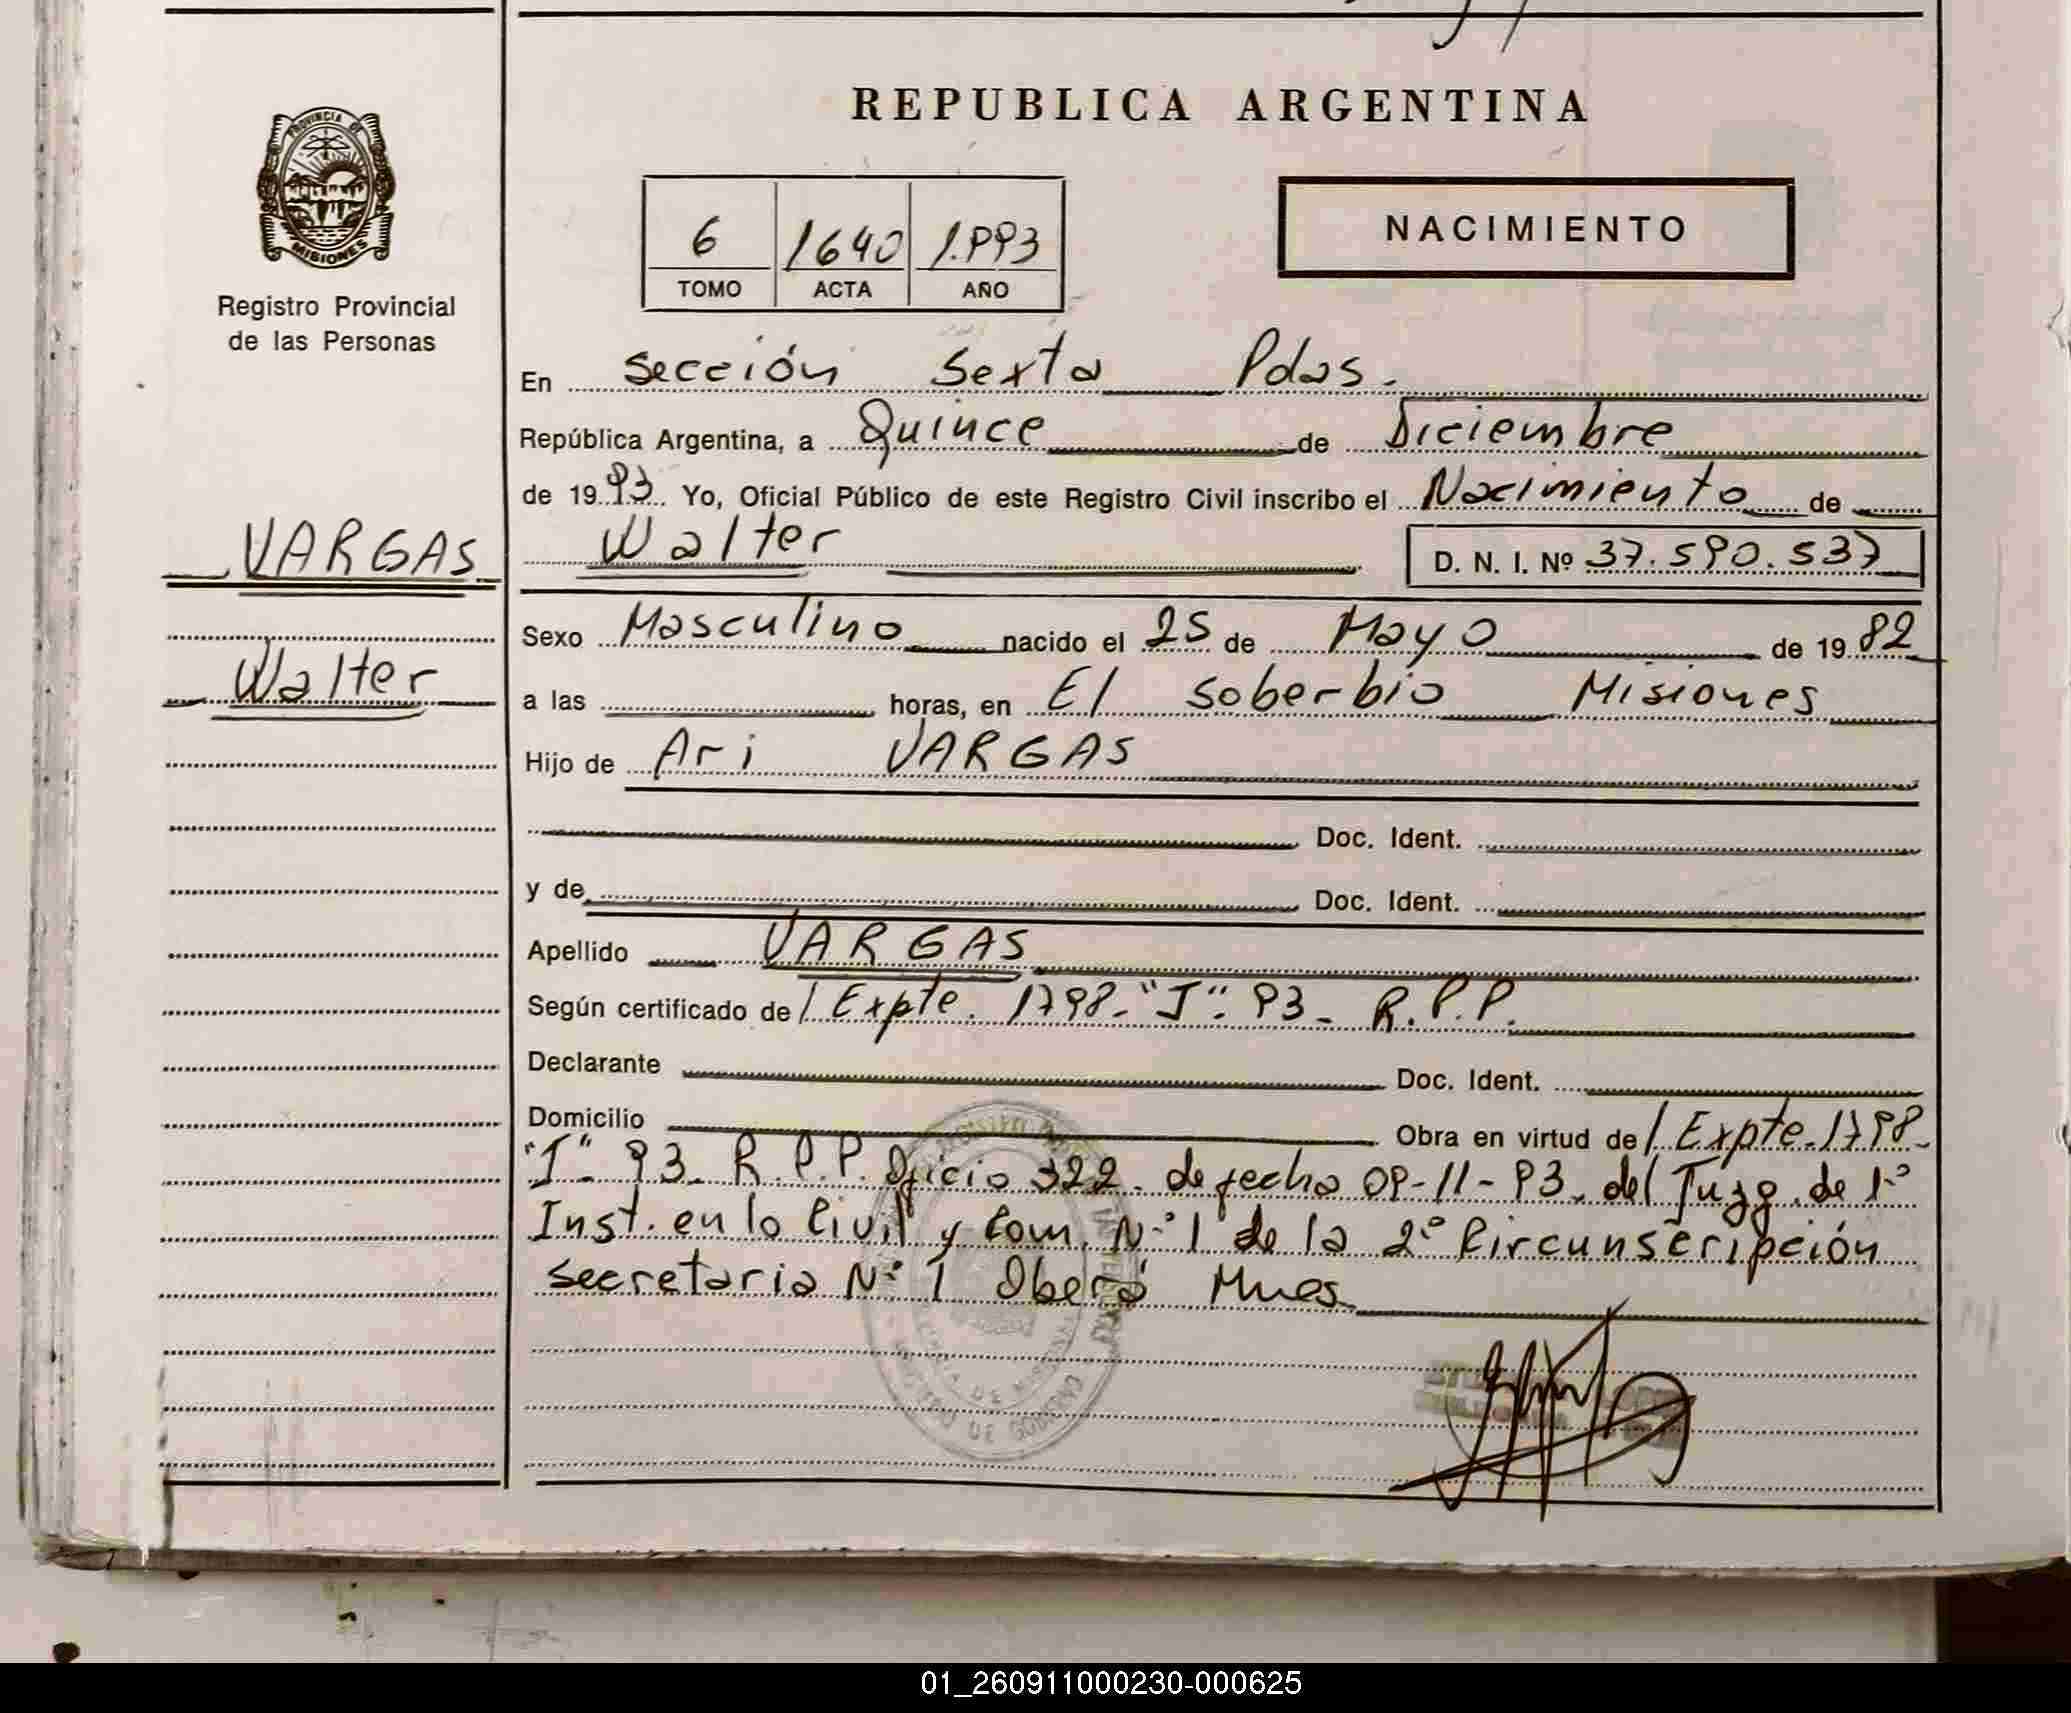 REPUBLICA ARGENTINA
PROVINCIA DE
MISIONES
Registro Provincial
de las Personas
6 1640 1.993
TOMO ACTA AÑO
NACIMIENTO
En Sección Sexta Pdas.
República Argentina, a Quince de Diciembre
de 1993 Yo, Oficial Público de este Registro Civil inscribo el Nacimiento de
VARGAS
Walter
Walter D. N. I. Nº 37.590.537
Sexo Masculino nacido el 25 de Mayo de 1982
a las horas, en El Soberbio Misiones
Hijo de Ari VARGAS
Doc. Ident.
y de Doc. Ident.
Apellido VARGAS
Según certificado de / Expte. 1798-"I"-93- R.P.P.
Declarante Doc. Ident.
Domicilio Obra en virtud de / Expte. 1798-
"I"-93. R.P.P. Oficio 322. de fecha 09-11-93. del Juzg. de 1º
Inst. en lo Civil y Com. Nº 1 de la 2º Circunscripción
secretaria Nº 1 Oberá Mnes.
01_260911000230-000625